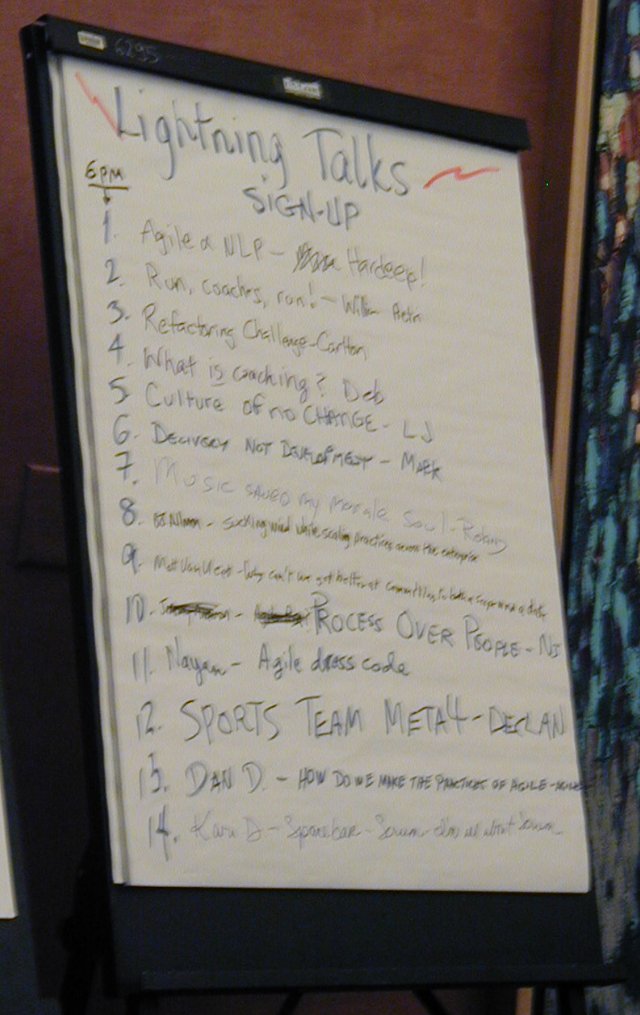 6295
Lightning Talks
SIGN-UP
6PM
1. Agile & NLP - Hardeep!
2. Run, coaches, run! - William
3. Refactoring Challenge - Carlton
4. What is coaching? Deb
5 Culture of no CHANGE - LJ
6. DELIVERY NOT DEVELOPMENT - MARK
7. Music saved my morale Soul - Robin
8. - Sucking wind while scaling practices across the enterprise
9. Matt Van Vleet - Why can't we get better at committing to both a scope and a date
10. PROCESS OVER PEOPLE - NJ
11. Nayan - Agile dress code
12. SPORTS TEAM META4 - DECLAN
13. DAN D. - HOW DO WE MAKE THE PRACTICES OF AGILE - AGILE
14. D - - Scrum